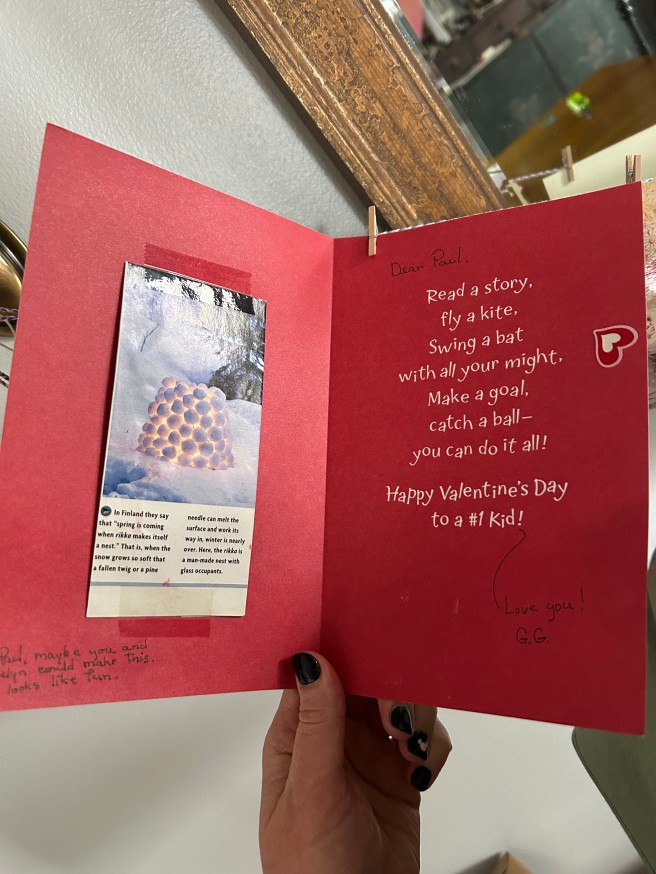 In Finland they say
that "spring is coming
when rikka makes itself
a nest." That is, when the
snow grows so soft that
a fallen twig or a pine
needle can melt the
surface and work its
way in, winter is nearly
over. Here, the rikka is
a man-made nest with
glass occupants.
Paul, maybe you and
could make this.
looks like fun.
Dear Paul,
Read a story,
fly a kite,
Swing a bat
with all your might,
Make a goal,
catch a ball—
you can do it all!
Happy Valentine's Day
to a #1 Kid!
Love you!
G.G.